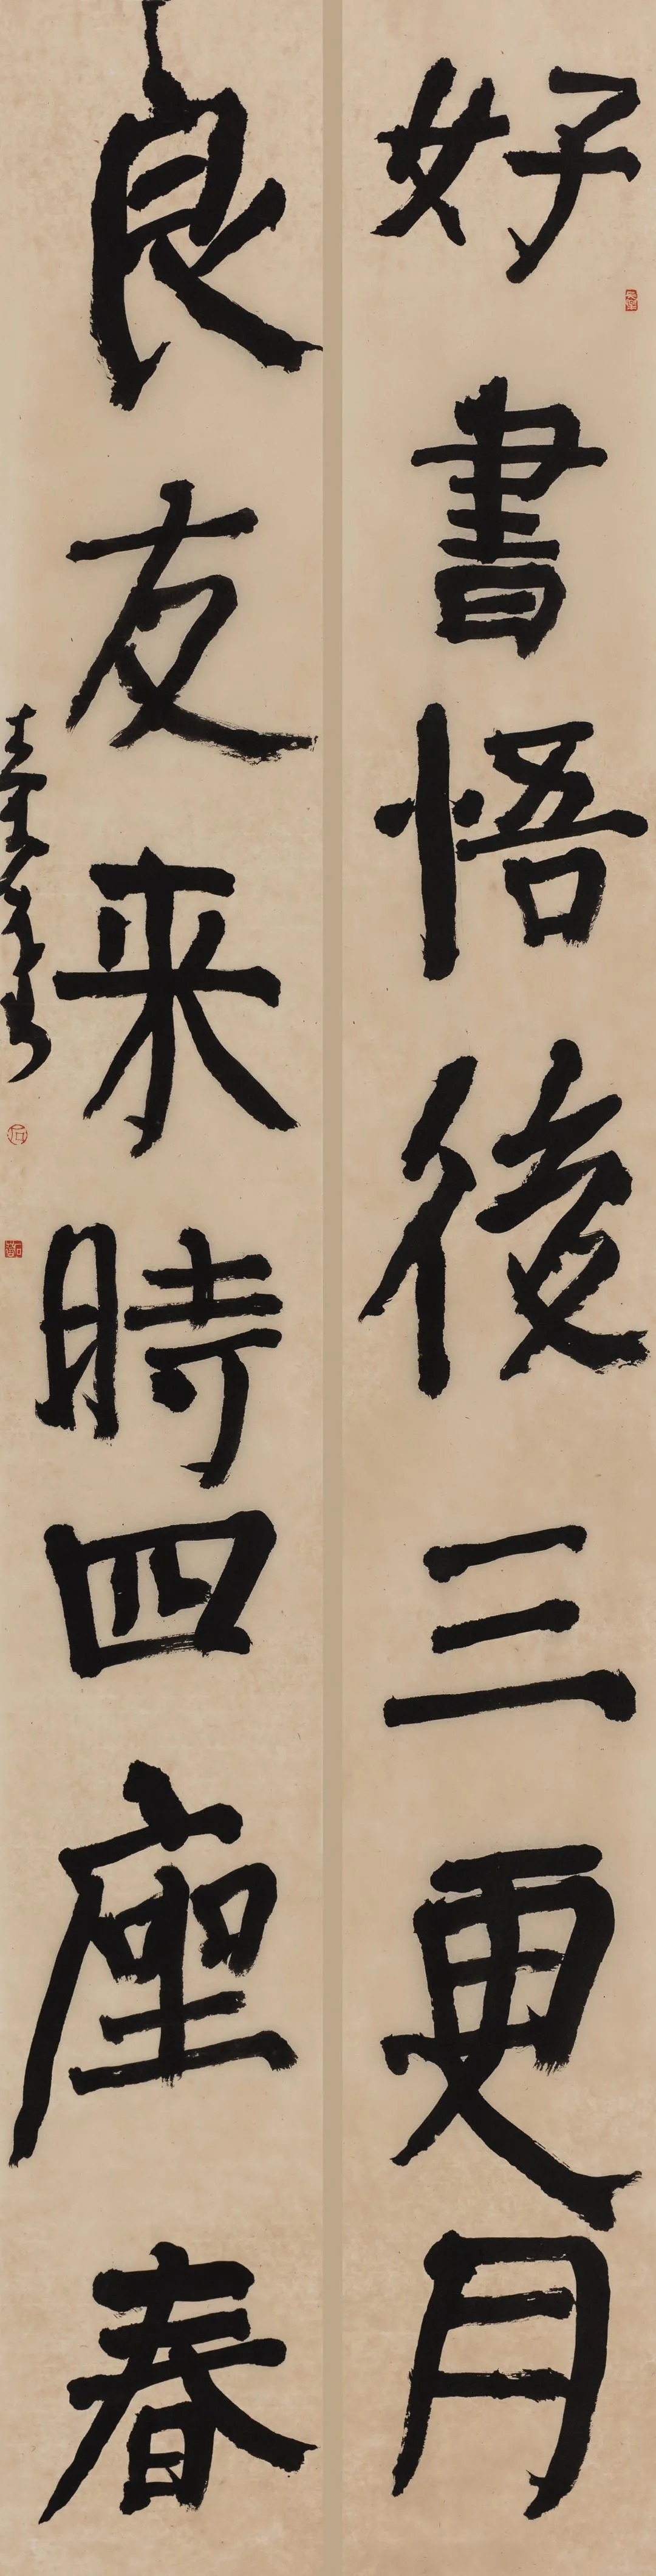 好書悟後三更月
良友来時四座春